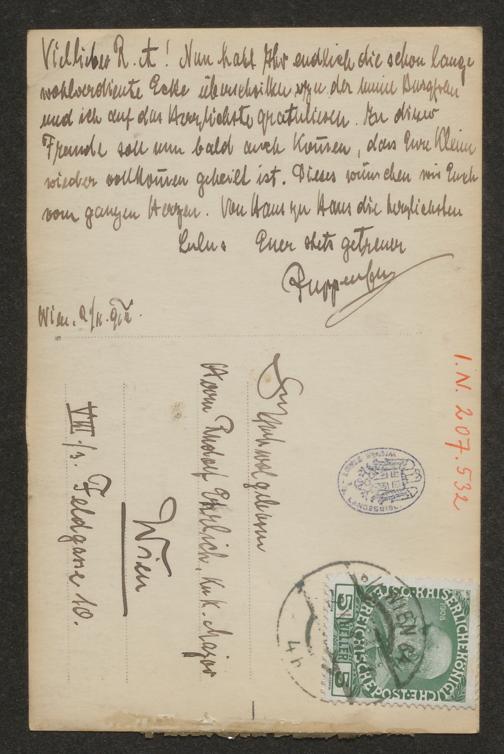 Viellieber R. A! Nun habt Ihr endlich die schon lange
wohlverdiente Ecke überschritten wozu der meine Burgfrau
und ich auf das Herzlichste gratulieren. Zu dieser
Freude soll nun bald auch kom̄en, das Eure Kleine
wieder vollkom̄en geheilt ist. Dieses wünschen wir Euch
vom ganzen Herzen. Von Haus zu Haus die herzlichsten
Lulu's Euer stets getreuer
Wien,
Hochwolgeboren
Herrn Rudolf Ehrlich, k.u.k. Major
Wien
VIII/1. Feldgasse 10.
I.N. 207.532
WIEN
4h
1908
KAIS. KAISERLICHE KÖNIGL
ÖSTERREICHISCHE POST
5 HELLER 5